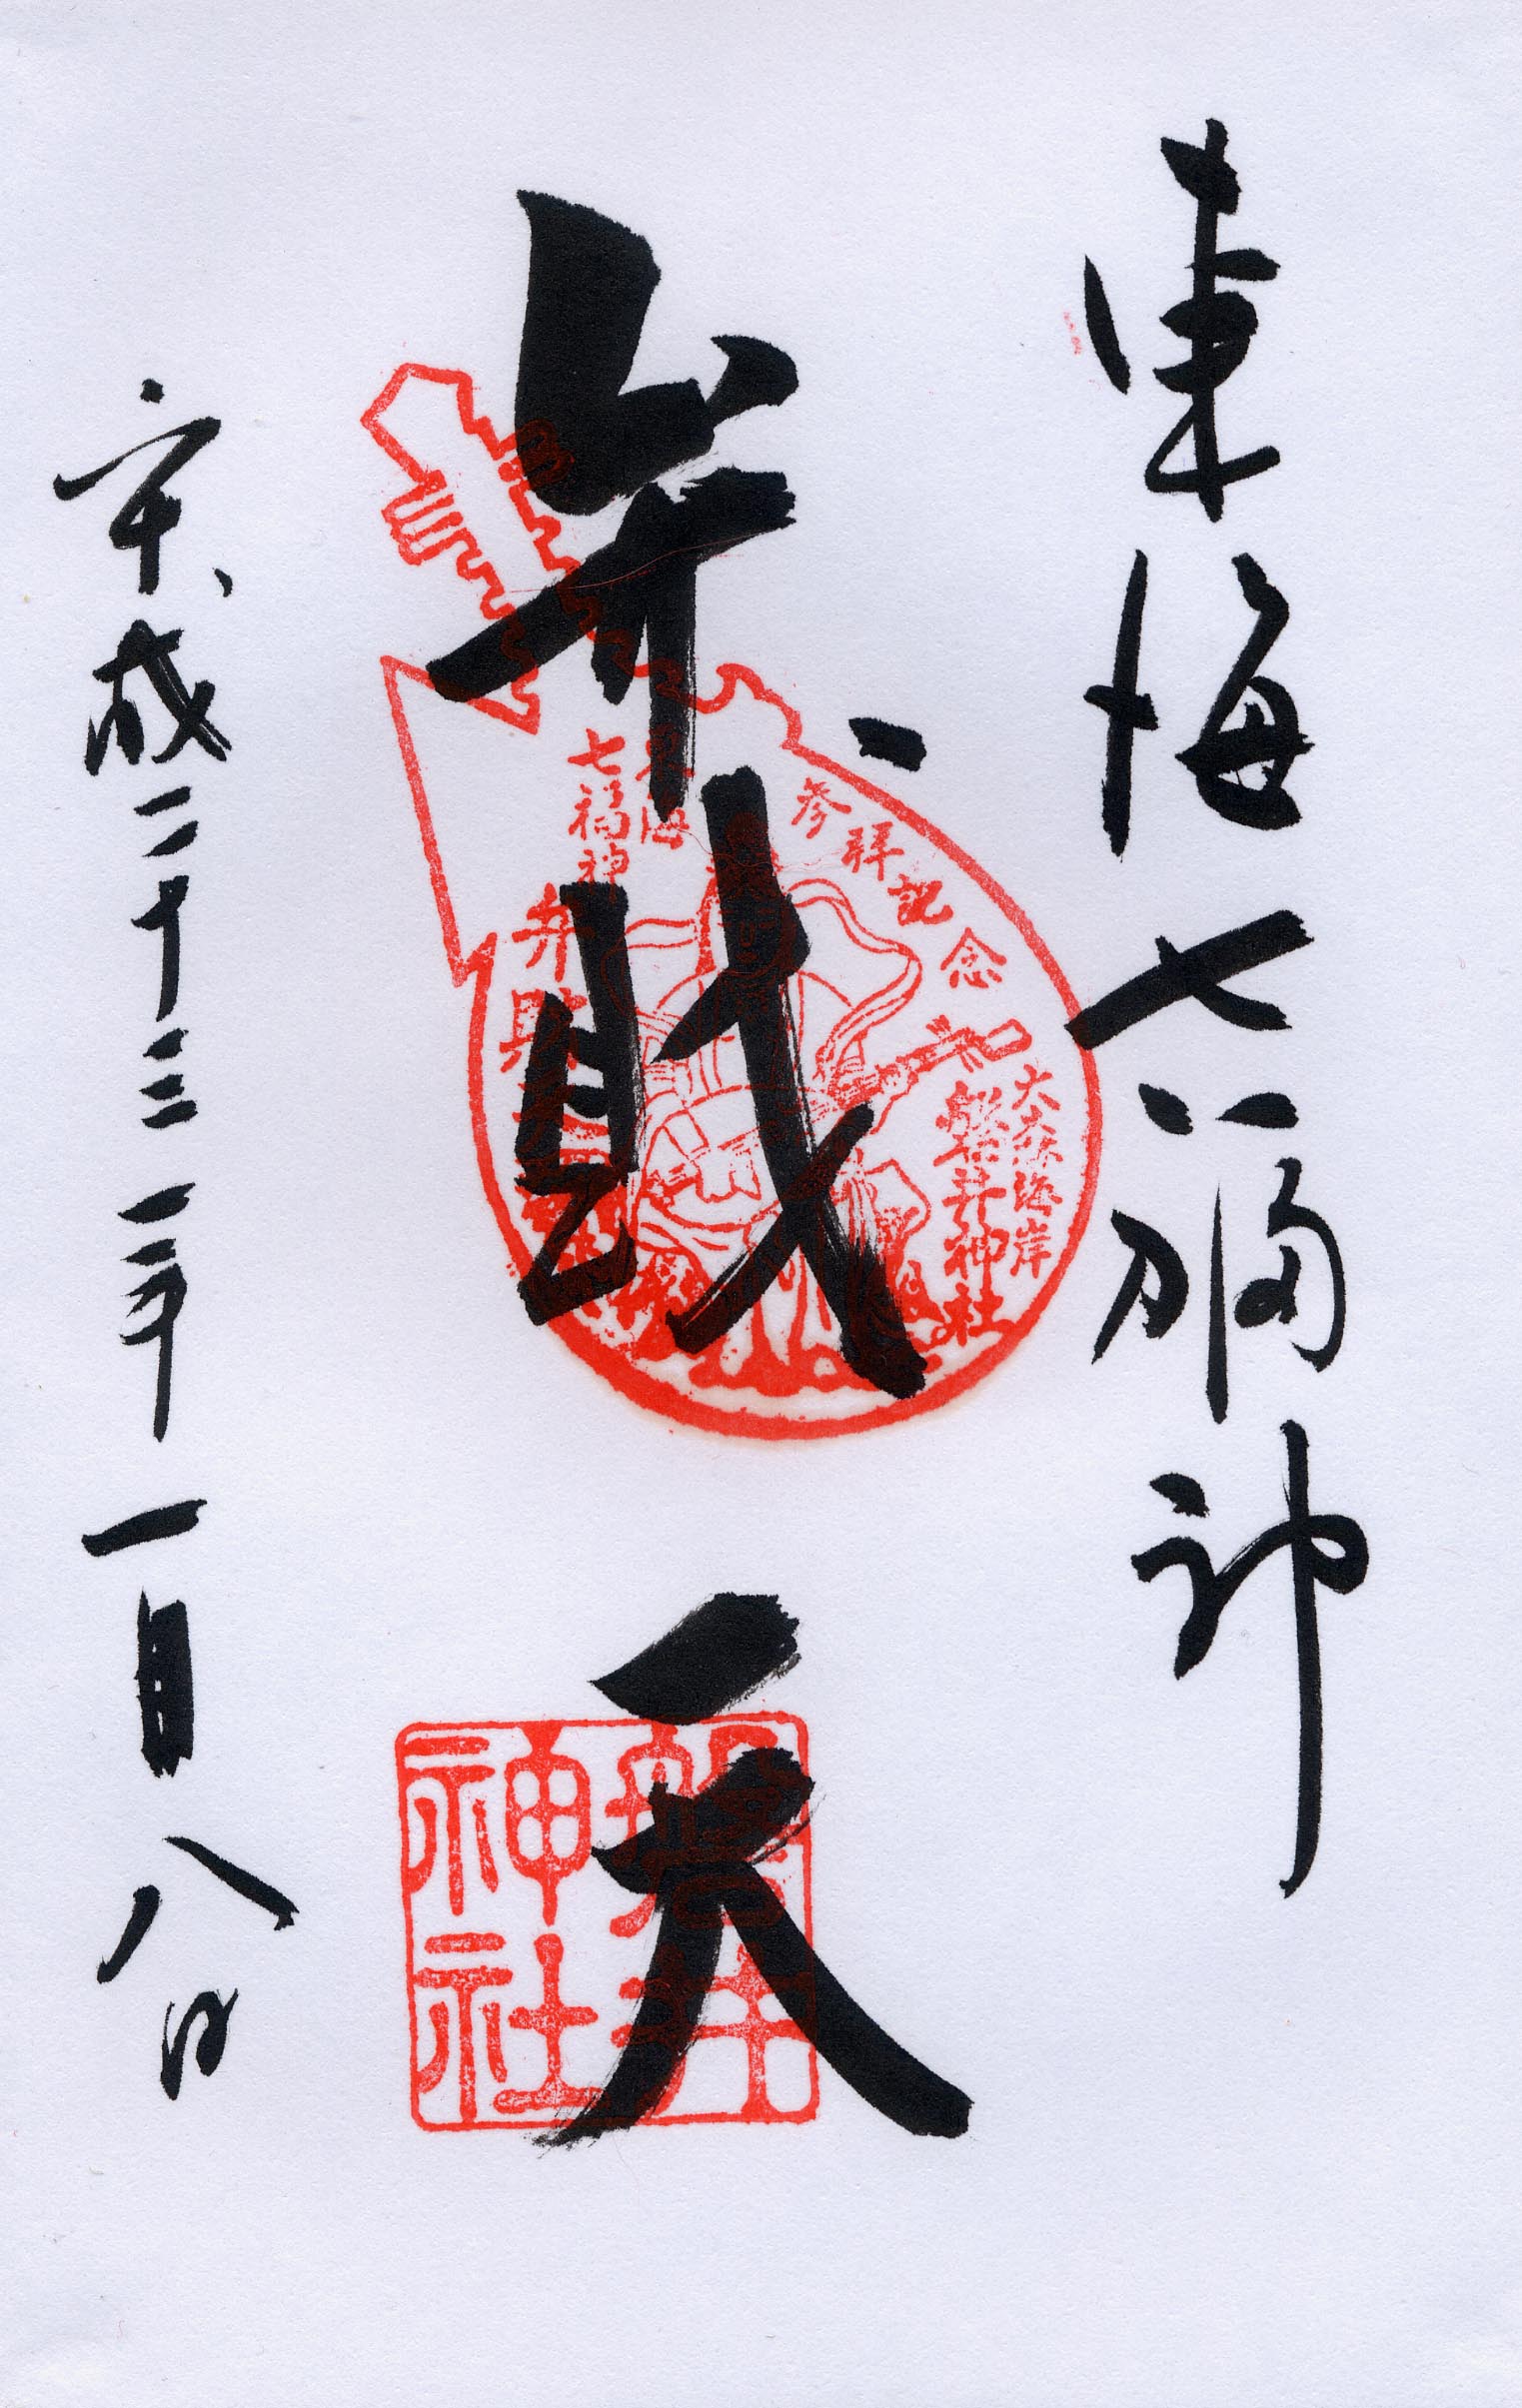 東海七福神
弁財天
平成二十三年一月八日
東海
七福神
弁財天
参拝記念
大森海岸
磐井神社
磐井
神社